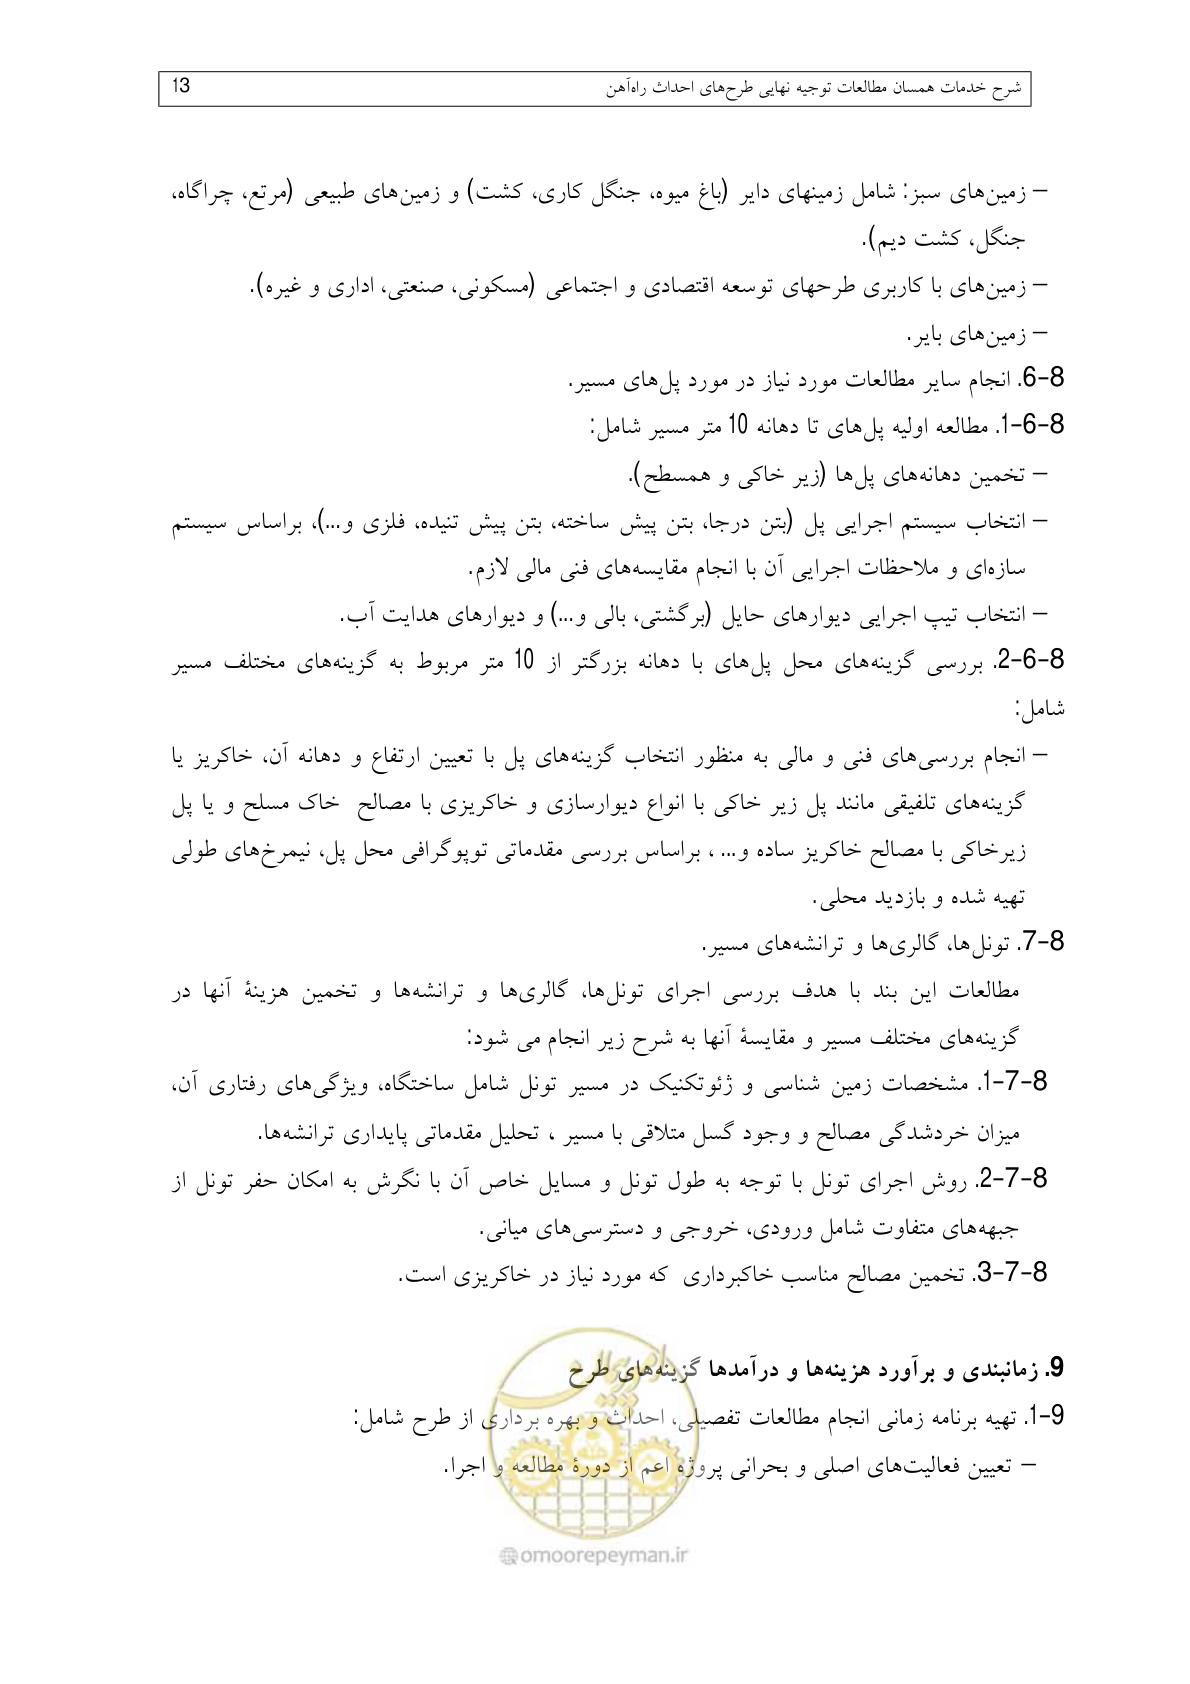 شرح خدمات همسان مطالعات توجیه نهایی طرح‌های احداث راه‌آهن 13
– زمین‌های سبز: شامل زمینهای دایر (باغ میوه، جنگل کاری، کشت) و زمین‌های طبیعی (مرتع، چراگاه،
جنگل، کشت دیم).
– زمین‌های با کاربری طرحهای توسعه اقتصادی و اجتماعی (مسکونی، صنعتی، اداری و غیره).
– زمین‌های بایر.
6-8. انجام سایر مطالعات مورد نیاز در مورد پل‌های مسیر.
1-6-8. مطالعه اولیه پل‌های تا دهانه 10 متر مسیر شامل:
– تخمین دهانه‌های پل‌ها (زیر خاکی و همسطح).
– انتخاب سیستم اجرایی پل (بتن درجا، بتن پیش ساخته، بتن پیش تنیده، فلزی و...)، براساس سیستم
سازه‌ای و ملاحظات اجرایی آن با انجام مقایسه‌های فنی مالی لازم.
– انتخاب تیپ اجرایی دیوارهای حایل (برگشتی، بالی و...) و دیوارهای هدایت آب.
2-6-8. بررسی گزینه‌های محل پل‌های با دهانه بزرگتر از 10 متر مربوط به گزینه‌های مختلف مسیر
شامل:
– انجام بررسی‌های فنی و مالی به منظور انتخاب گزینه‌های پل با تعیین ارتفاع و دهانه آن، خاکریز یا
گزینه‌های تلفیقی مانند پل زیر خاکی با انواع دیوارسازی و خاکریزی با مصالح خاک مسلح و یا پل
زیرخاکی با مصالح خاکریز ساده و... ، براساس بررسی مقدماتی توپوگرافی محل پل، نیمرخ‌های طولی
تهیه شده و بازدید محلی.
7-8. تونل‌ها، گالری‌ها و ترانشه‌های مسیر.
مطالعات این بند با هدف بررسی اجرای تونل‌ها، گالری‌ها و ترانشه‌ها و تخمین هزینهٔ آنها در
گزینه‌های مختلف مسیر و مقایسهٔ آنها به شرح زیر انجام می شود:
1-7-8. مشخصات زمین شناسی و ژئوتکنیک در مسیر تونل شامل ساختگاه، ویژگی‌های رفتاری آن،
میزان خردشدگی مصالح و وجود گسل متلاقی با مسیر ، تحلیل مقدماتی پایداری ترانشه‌ها.
2-7-8. روش اجرای تونل با توجه به طول تونل و مسایل خاص آن با نگرش به امکان حفر تونل از
جبهه‌های متفاوت شامل ورودی، خروجی و دسترسی‌های میانی.
3-7-8. تخمین مصالح مناسب خاکبرداری که مورد نیاز در خاکریزی است.
9. زمانبندی و برآورد هزینه‌ها و درآمدها گزینه‌های طرح
1-9. تهیه برنامه زمانی انجام مطالعات تفصیلی، احداث و بهره برداری از طرح شامل:
– تعیین فعالیت‌های اصلی و بحرانی پروژه اعم از دورهٔ مطالعه و اجرا.
@omoorepeyman.ir